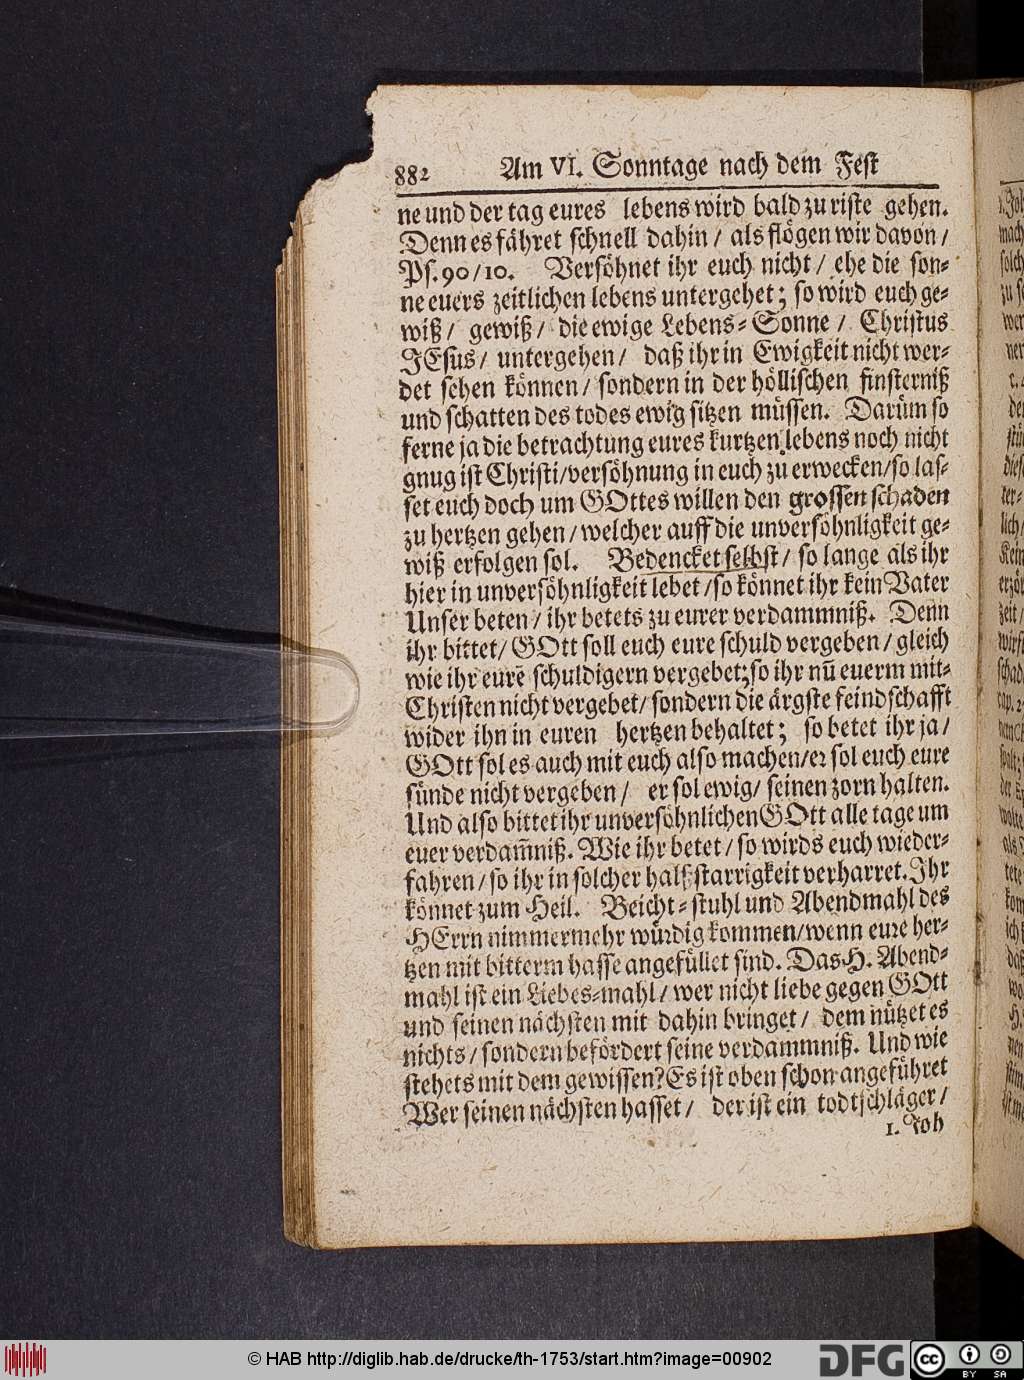 882 Am VI. Sonntage nach dem Fest
ne und der tag eures lebens wird bald zu riste gehen.
Denn es fähret schnell dahin / als flögen wir davon /
Ps. 90/10. Versöhnet ihr euch nicht / ehe die son-
ne euers zeitlichen lebens untergehet; so wird euch ge-
wiß / gewiß / die ewige Lebens-Sonne / Christus
JEsus / untergehen / daß ihr in Ewigkeit nicht wer-
det sehen können / sondern in der höllischen finsterniß
und schatten des todes ewig sitzen müssen. Darüm so
ferne ja die betrachtung eures kurtzen lebens noch nicht
gnug ist Christi/versöhnung in euch zu erwecken/so las-
set euch doch um GOttes willen den grossen schaden
zu hertzen gehen / welcher auff die unversöhnligkeit ge-
wiß erfolgen sol. Bedencket selbst / so lange als ihr
hier in unversöhnligkeit lebet / so könnet ihr kein Vater
Unser beten / ihr betets zu eurer verdammniß. Denn
ihr bittet / GOtt soll euch eure schuld vergeben / gleich
wie ihr eurē schuldigern vergebet; so ihr nū euerm mit-
Christen nicht vergebet / sondern die ärgste feindschafft
wider ihn in euren hertzen behaltet; so betet ihr ja /
GOtt sol es auch mit euch also machen/er sol euch eure
sünde nicht vergeben / er sol ewig / seinen zorn halten.
Und also bittet ihr unversöhnlichen GOtt alle tage um
euer verdam̄niß. Wie ihr betet / so wirds euch wieder-
fahren / so ihr in solcher halßstarrigkeit verharret. Ihr
könnet zum Heil. Beicht-stuhl und Abendmahl des
HErrn nimmermehr würdig kommen/wenn eure her-
tzen mit bitterm hasse angefüllet sind. Das H. Abend-
mahl ist ein Liebes-mahl / wer nicht liebe gegen GOtt
und seinen nächsten mit dahin bringet / dem nützet es
nichts / sondern befördert seine verdammniß. Und wie
stehets mit dem gewissen? Es ist oben schon angeführet
Wer seinen nächsten hasset / der ist ein todtschläger /
1. Joh
© HAB http://diglib.hab.de/drucke/th-1753/start.htm?image=00902
DFG
cc
BY SA